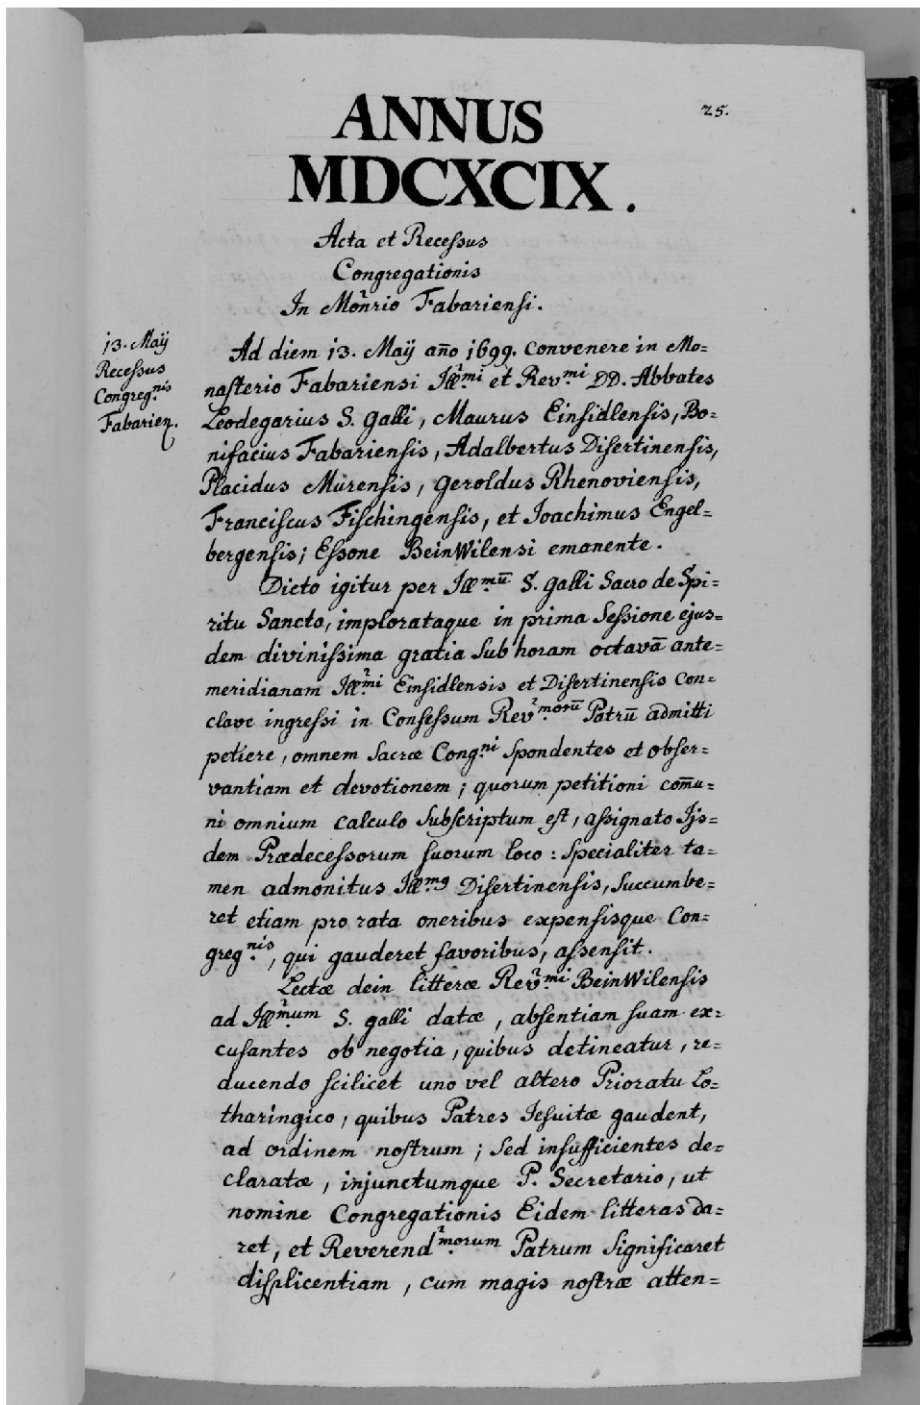 25.
ANNUS
MDCXCIX.
Acta et Recessus
Congregationis
In Mon̄rio Fabariensi.
13. Maÿ
Recessus
Congreg.nis
Fabarien.
Ad diem 13. Maÿ año 1699. convenere in Mo=
nasterio Fabariensi Ill.mi et Rev.mi DD. Abbates
Leodegarius S. Galli, Maurus Einsidlensis, Bo=
nifacius Fabariensis, Adalbertus Disertinensis,
Placidus Murensis, Geroldus Rhenoviensis,
Franciscus Fischingensis, et Joachimus Engel=
bergensis; Essone BeinWilensi emanente.
Dicto igitur per Ill.mū S. Galli Sacro de Spi=
ritu Sancto, implorataque in prima Sessione ejus=
dem divinissima gratia sub horam octavā ante=
meridianam Ill.mi Einsidlensis et Disertinensis Con=
clave ingressi in Consessum Rev.morū Patrū admitti
petiere, omnem sacræ Cong.ni spondentes et obser=
vantiam et devotionem; quorum petitioni com̄u=
ni omnium calculo subscriptum est, assignato Ijs=
dem Prædecessorum suorum loco: specialiter ta=
men admonitus Ill.mꝰ Disertinensis, succumbe=
ret etiam pro rata oneribus expensisque Con=
greg.nis, qui gauderet favoribus, assensit.
Lectæ dein litteræ Rev.mi BeinWilensis
ad Ill.mum S. Galli datæ, absentiam suam ex=
cusantes ob negotia, quibus detineatur, re=
ducendo scilicet uno vel altero Prioratu Lo=
tharingico, quibus Patres Jesuitæ gaudent,
ad ordinem nostrum; sed insufficientes de=
claratæ, injunctumque P. Secretario, ut
nomine Congregationis Eidem litteras da=
ret, et Reverend.morum Patrum significaret
displicentiam, cum magis nostræ atten=